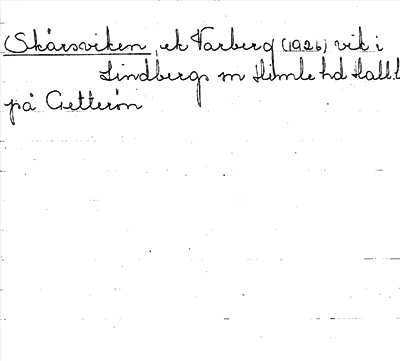 Skårsviken, ek Varberg (1926) vik i
Lindbergs sn Himle hd Hall.l
på Getterön